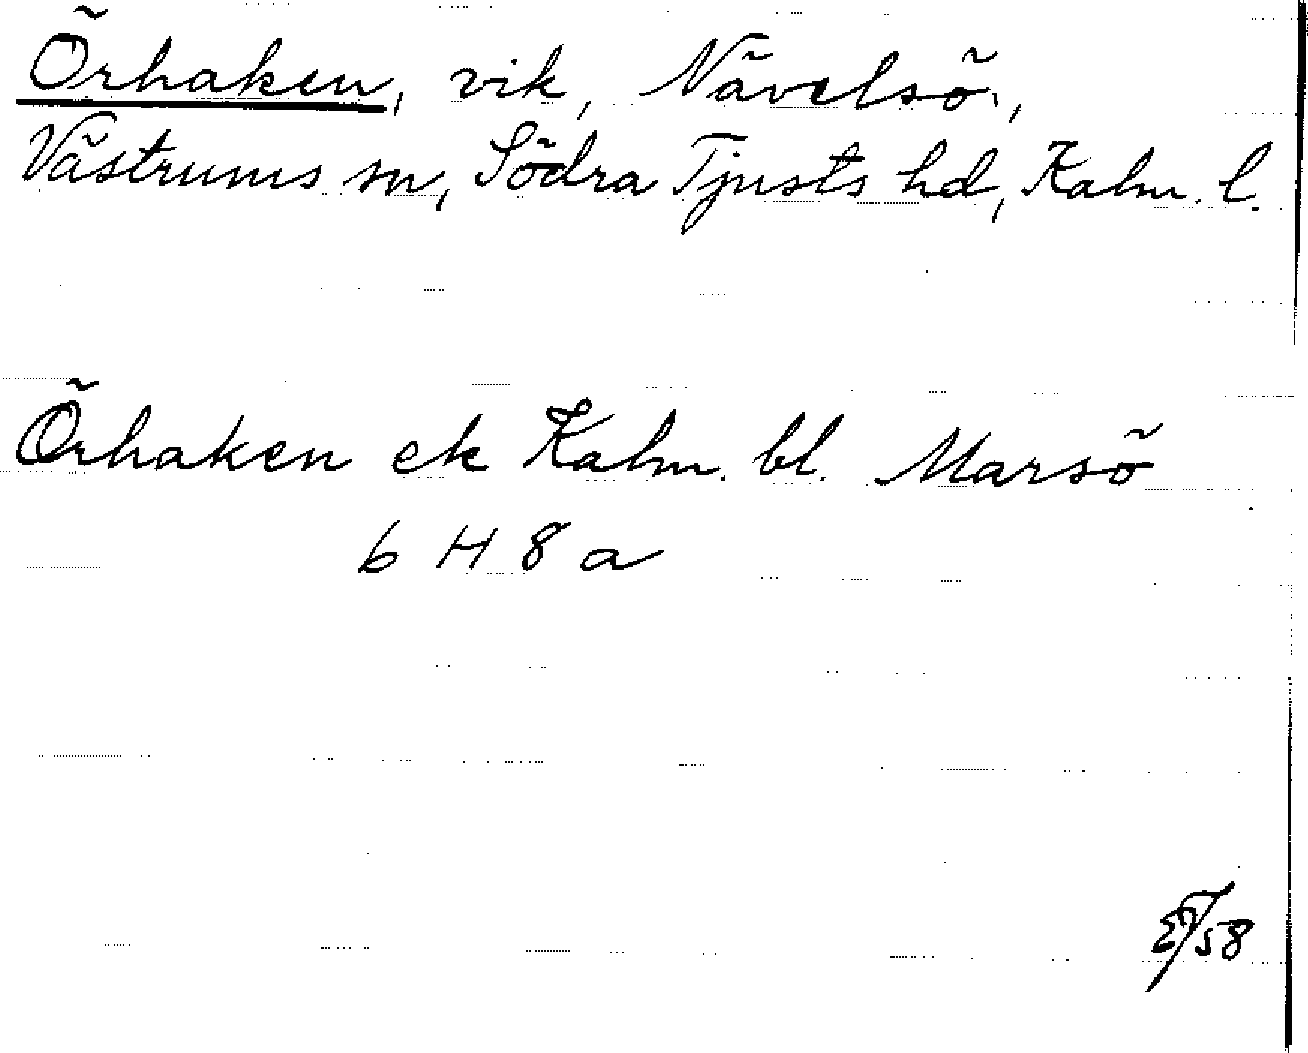 Örhaken, vik, Nävelsö,
Västrums sn, Södra Tjusts hd, Kalm. l.
Örhaken ek Kalm. bl. Marsö
6 H 8 a
58